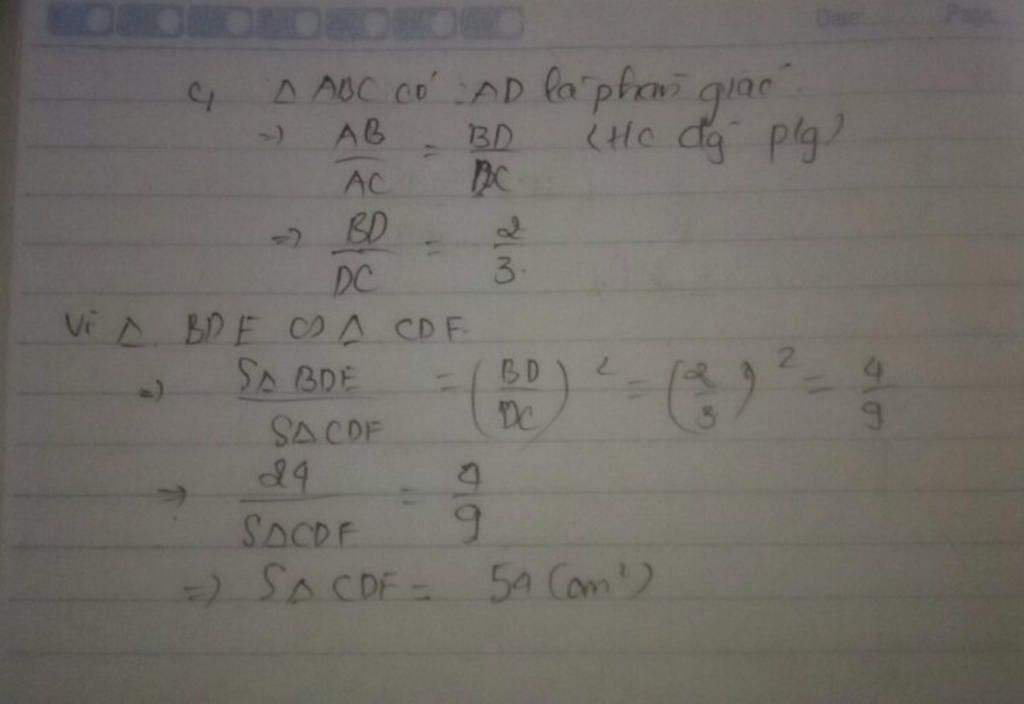 Date: Page:
c, Δ ABC có : AD là phân giác.
=> AB/AC = BD/DC (t/c đg plg)
=> BD/DC = 2/3.
Vì Δ BDE ∽ Δ CDF
=> SΔ BDE / SΔ CDF = (BD/DC)² = (2/3)² = 4/9
=> 24/SΔCDF = 4/9
=> SΔ CDF = 54 (cm²)